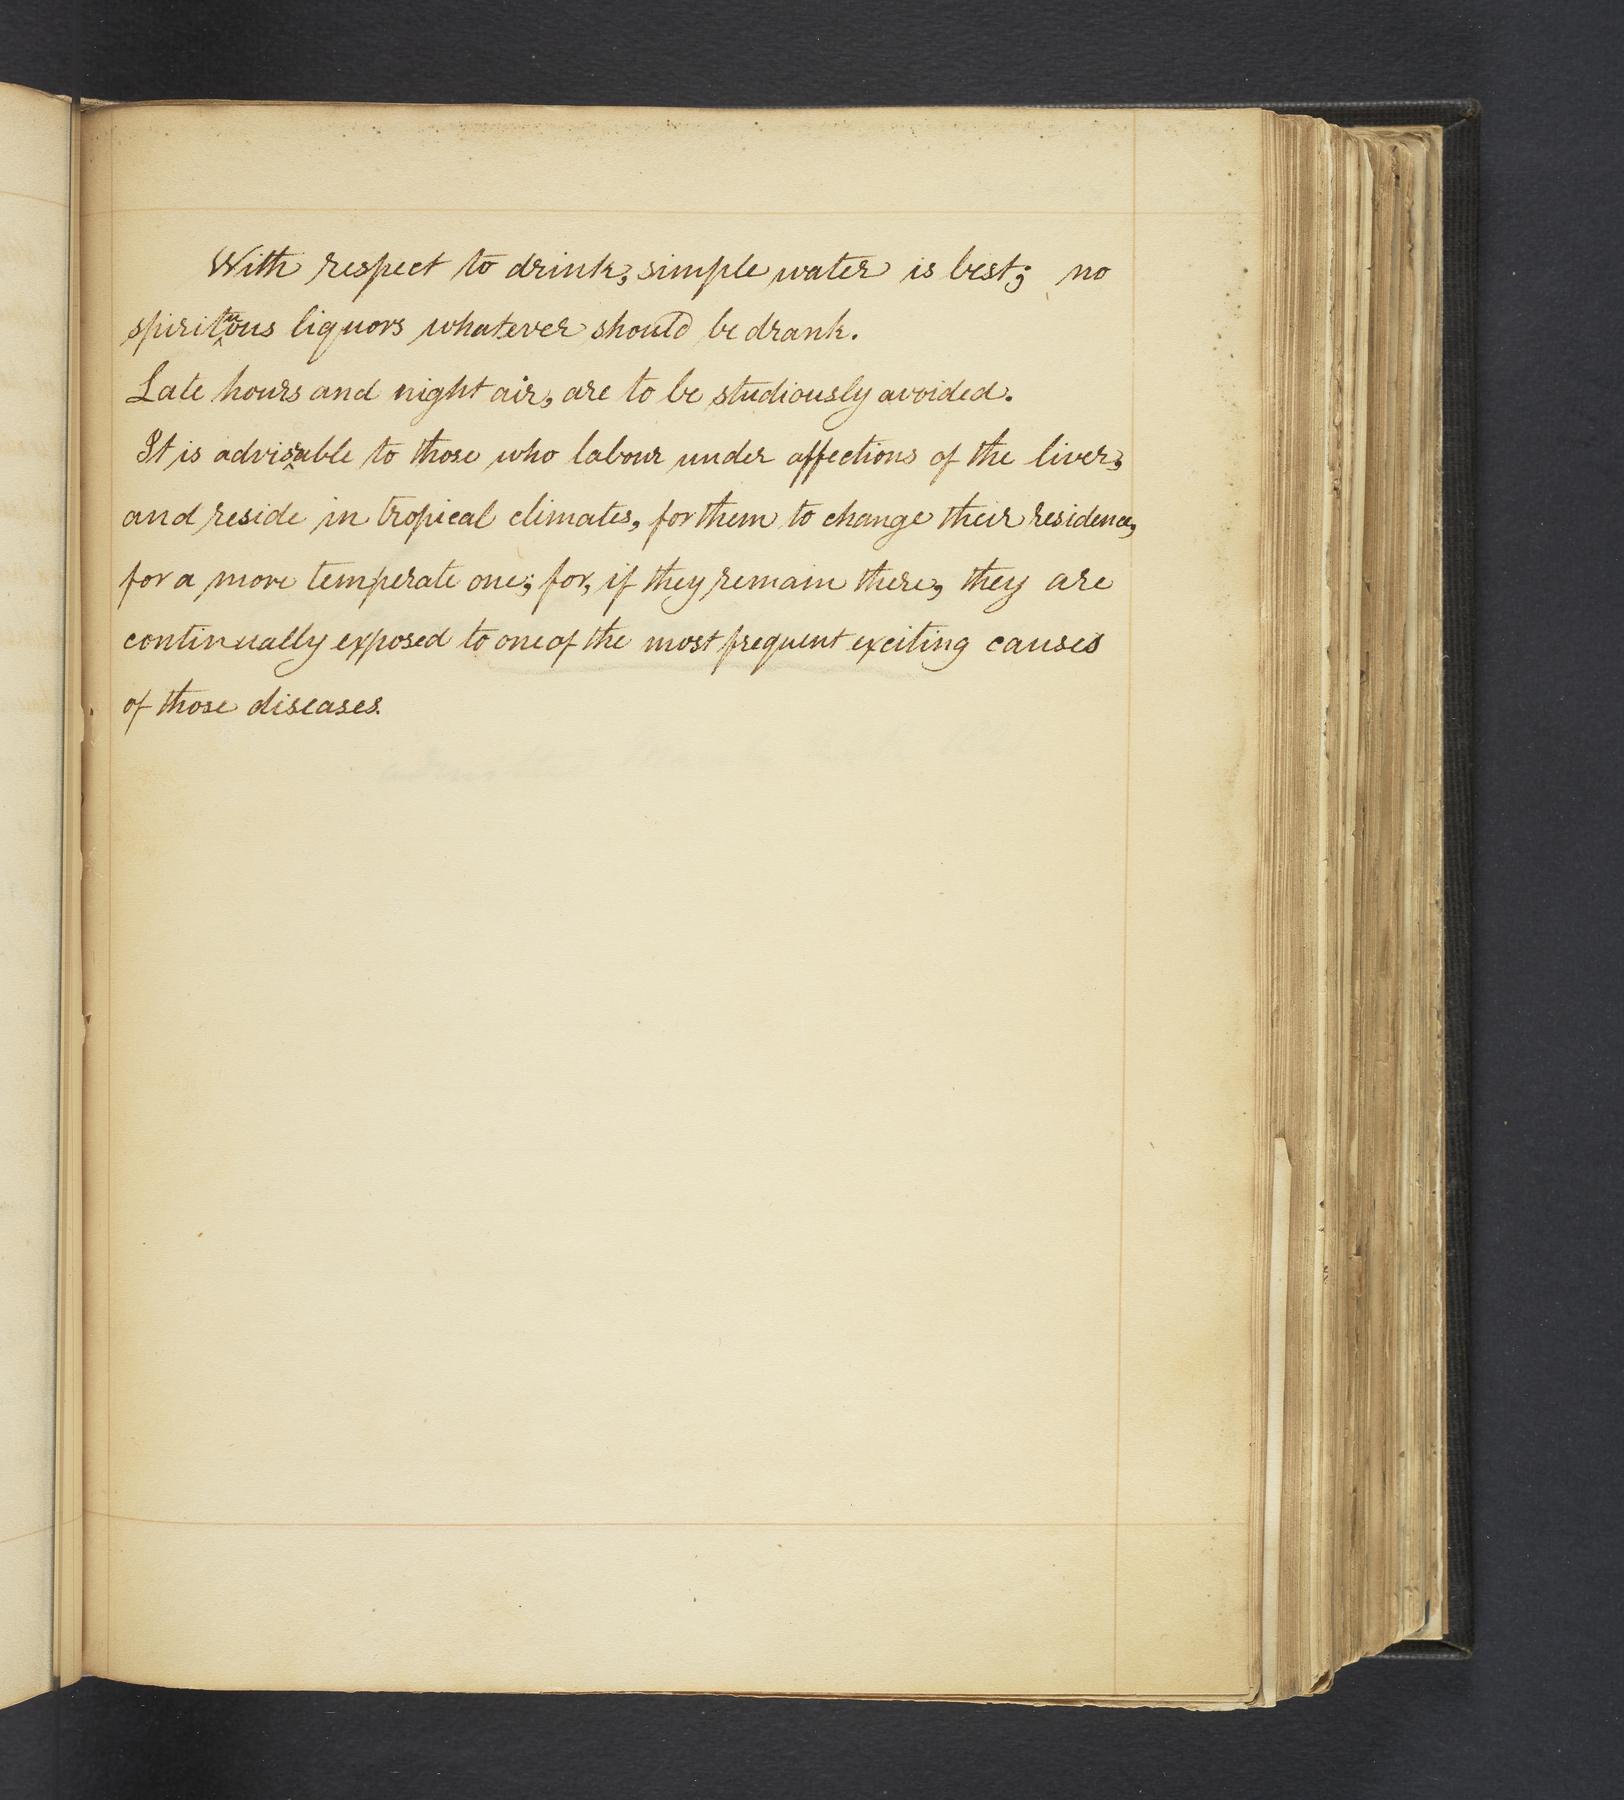 With respect to drink, simple water is best; no
spirituous liquors whatever should be drank.
Late hours and night air, are to be studiously avoided.
It is advisable to those who labour under affections of the liver,
and reside in tropical climates, for them to change their residence,
for a more temperate one; for, if they remain there, they are
continually exposed to one of the most frequent exciting causes
of those diseases.